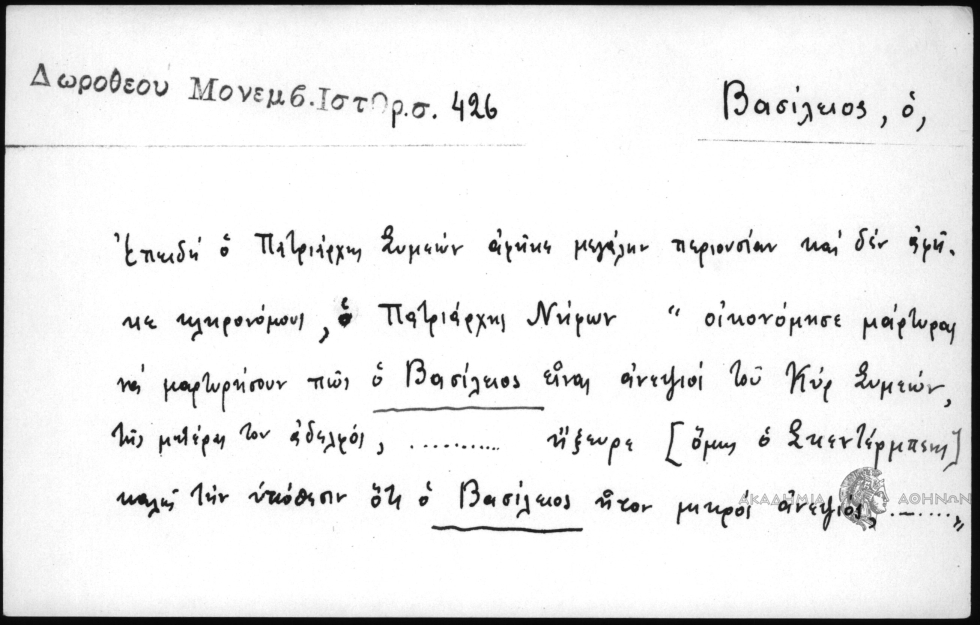 Δωροθεου Μονεμβ. Ιστορ. σ. 426
Βασίλειος, ὁ,
Ἐπειδή ὁ Πατριάρχης Συμεών ἀφῆκε μεγάλην περιουσίαν καί δέν ἀφῆ-
κε κληρονόμους, ὁ Πατριάρχης Νήφων “ οἰκονόμησε μάρτυρας
νά μαρτυρήσουν πῶς ὁ Βασίλειος εἶναι ἀνεψιός τοῦ Κύρ Συμεών,
τῆς μητέρας του ἀδελφός, .......... ἤξευρε [ὅμως ὁ Σκεντέρμπεης]
καλῶς τήν ὑπόθεσιν ὅτι ὁ Βασίλειος ἦτον μικρός ἀνεψιός, ........„
ΑΚΑΔΗΜΙΑ ΑΘΗΝΩΝ